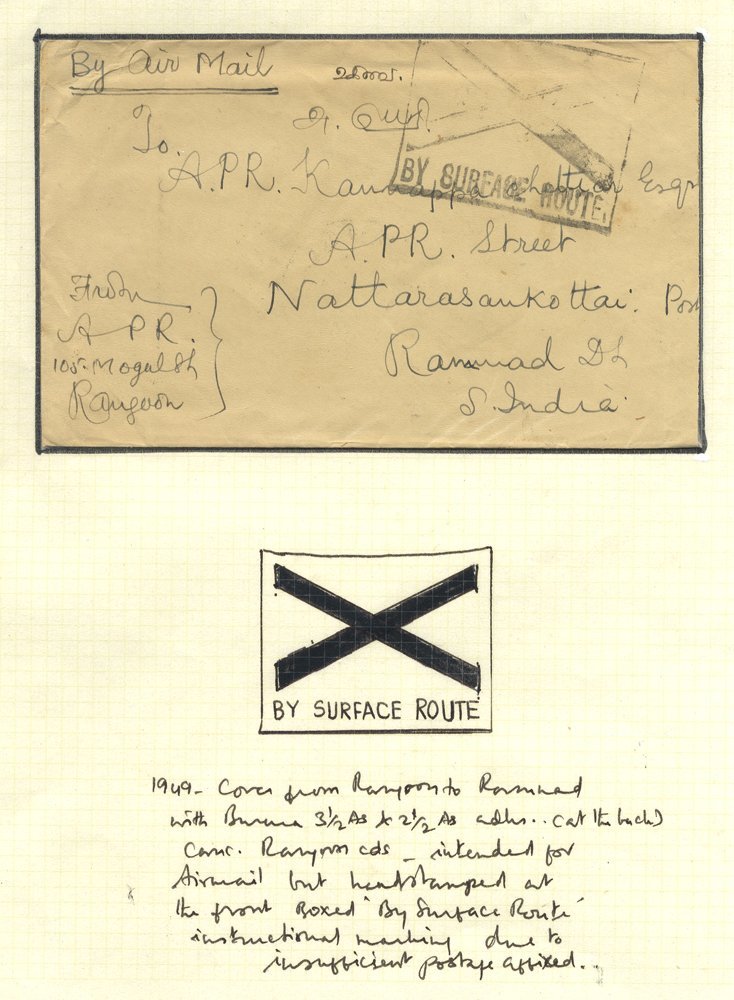 By Air Mail
உ சிவம்.
To.
BY SURFACE ROUTE.
A.PR. Kannappa Chettiar Esqr
A.PR. Street
Nattarasankottai. Post
Ramnad Dt
S. India.
From
A PR.
105. Mogul St
Rangoon
BY SURFACE ROUTE
1949 - Cover from Rangoon to Ramnad
with Burma 3½ As & 2½ As adhs.. (at the back)
Canc. Rangoon cds - intended for
Airmail but handstamped at
the front Boxed "By Surface Route"
instructional marking due to
insufficient postage affixed..